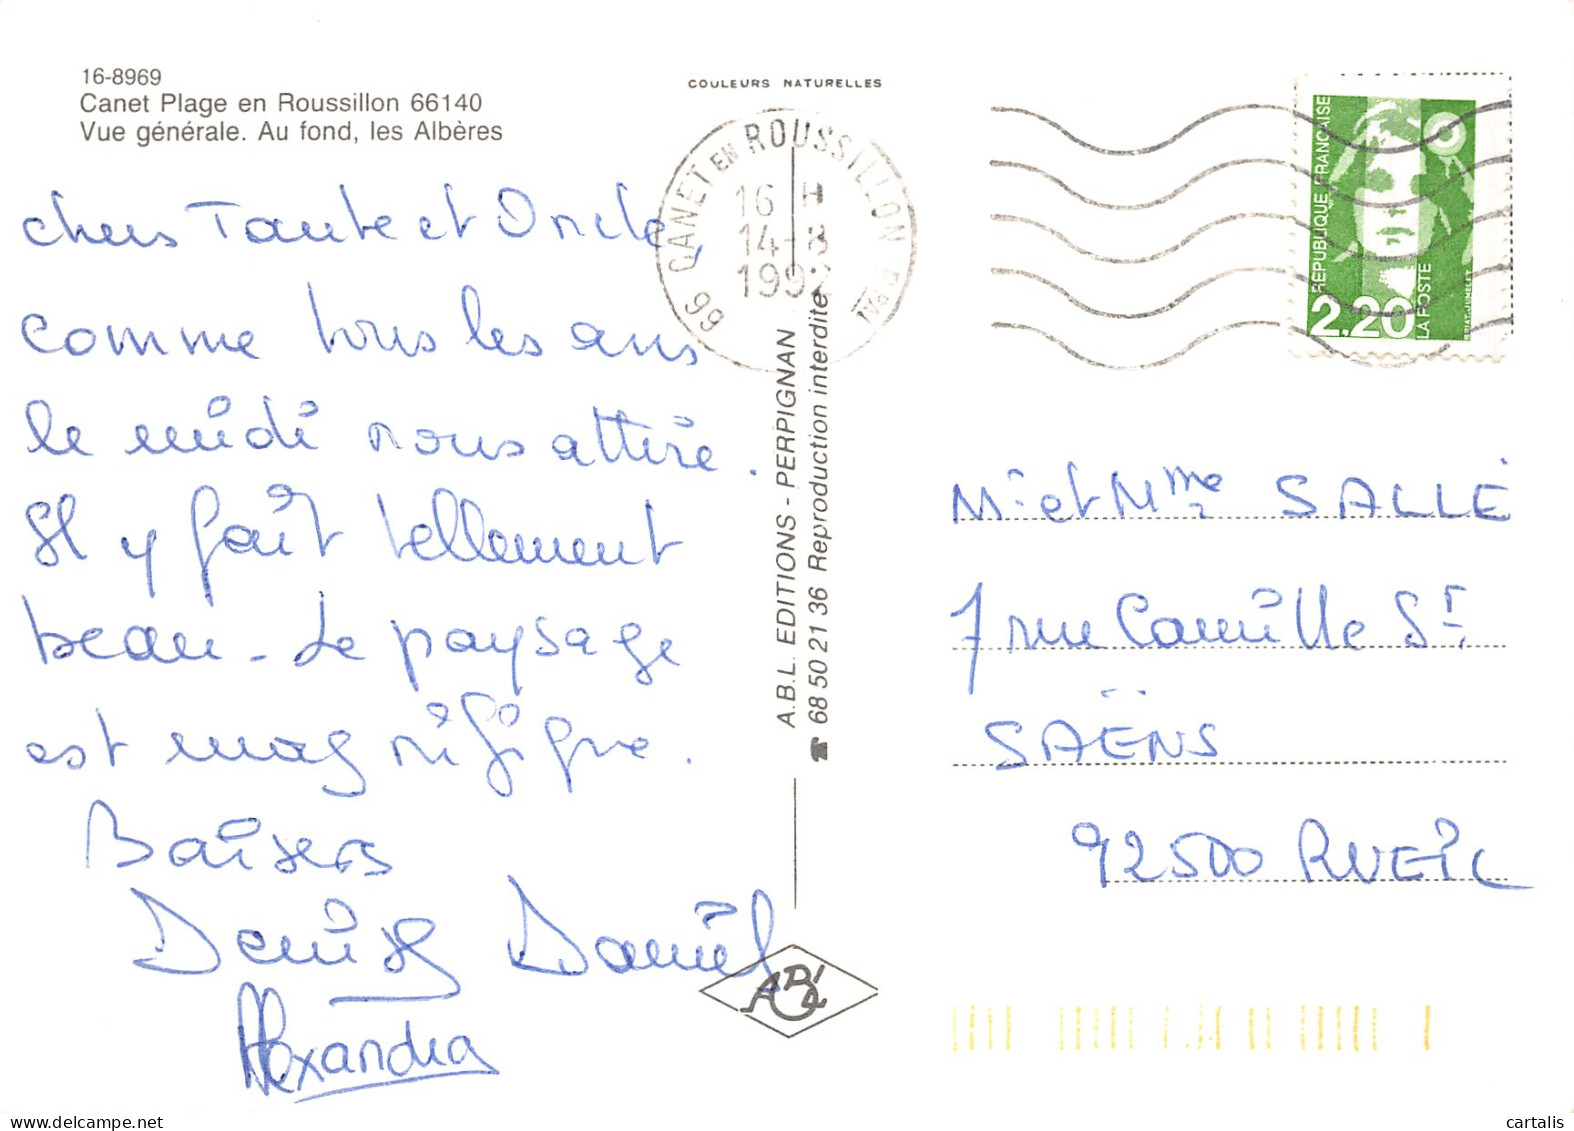 16-8969
Canet Plage en Roussillon 66140
Vue générale. Au fond, les Albères
COULEURS NATURELLES
66 CANET EN ROUSSILLON PPAL
16 H
14-8
1992
RÉPUBLIQUE FRANÇAISE
2,20
LA POSTE
BRIAT-JUMELET
chers Tante et Oncle,
comme tous les ans
le midi nous attire.
Il y fait tellement
beau - Le paysage
est magnifique.
Baisers
Denise Daniel
Alexandra
A.B.L. EDITIONS - PERPIGNAN
☎ 68 50 21 36 Reproduction interdite
ABL
Mr et Mme SALLÉ
7 rue Camille St
SAËNS
92500 RUEIL
cartalis